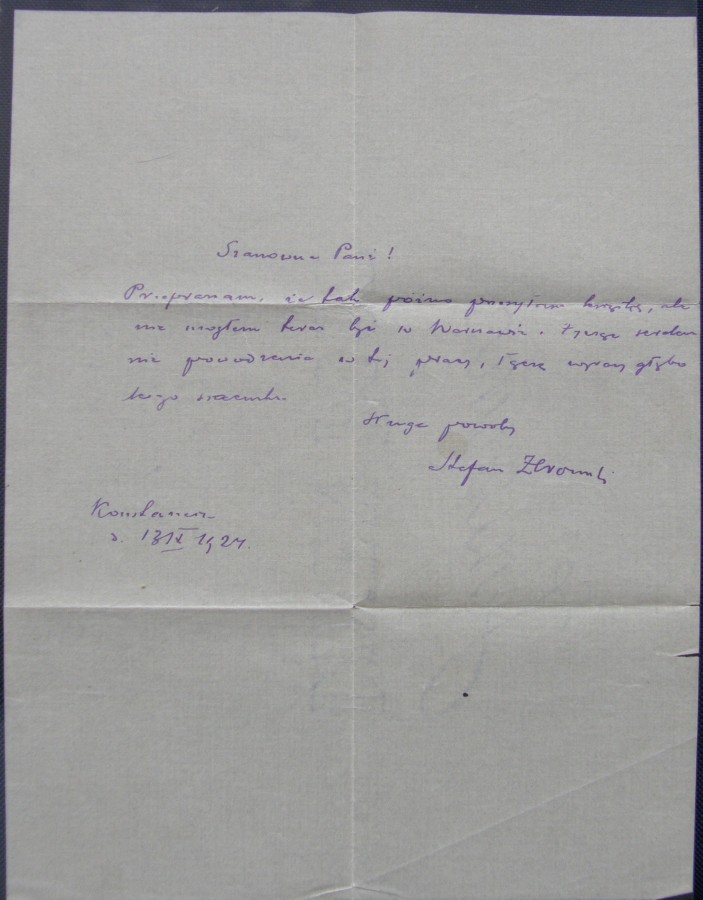 Szanowna Pani!
Przepraszam, że tak późno przesyłam książkę, ale
nie mogłem teraz być w Warszawie. Życzę serdecz
nie powodzenia w tej pracy, łączę wyrazy głębo
kiego szacunku
sługa powolny
Stefan Żeromski
Konstancin
d. 13 IX 1924.